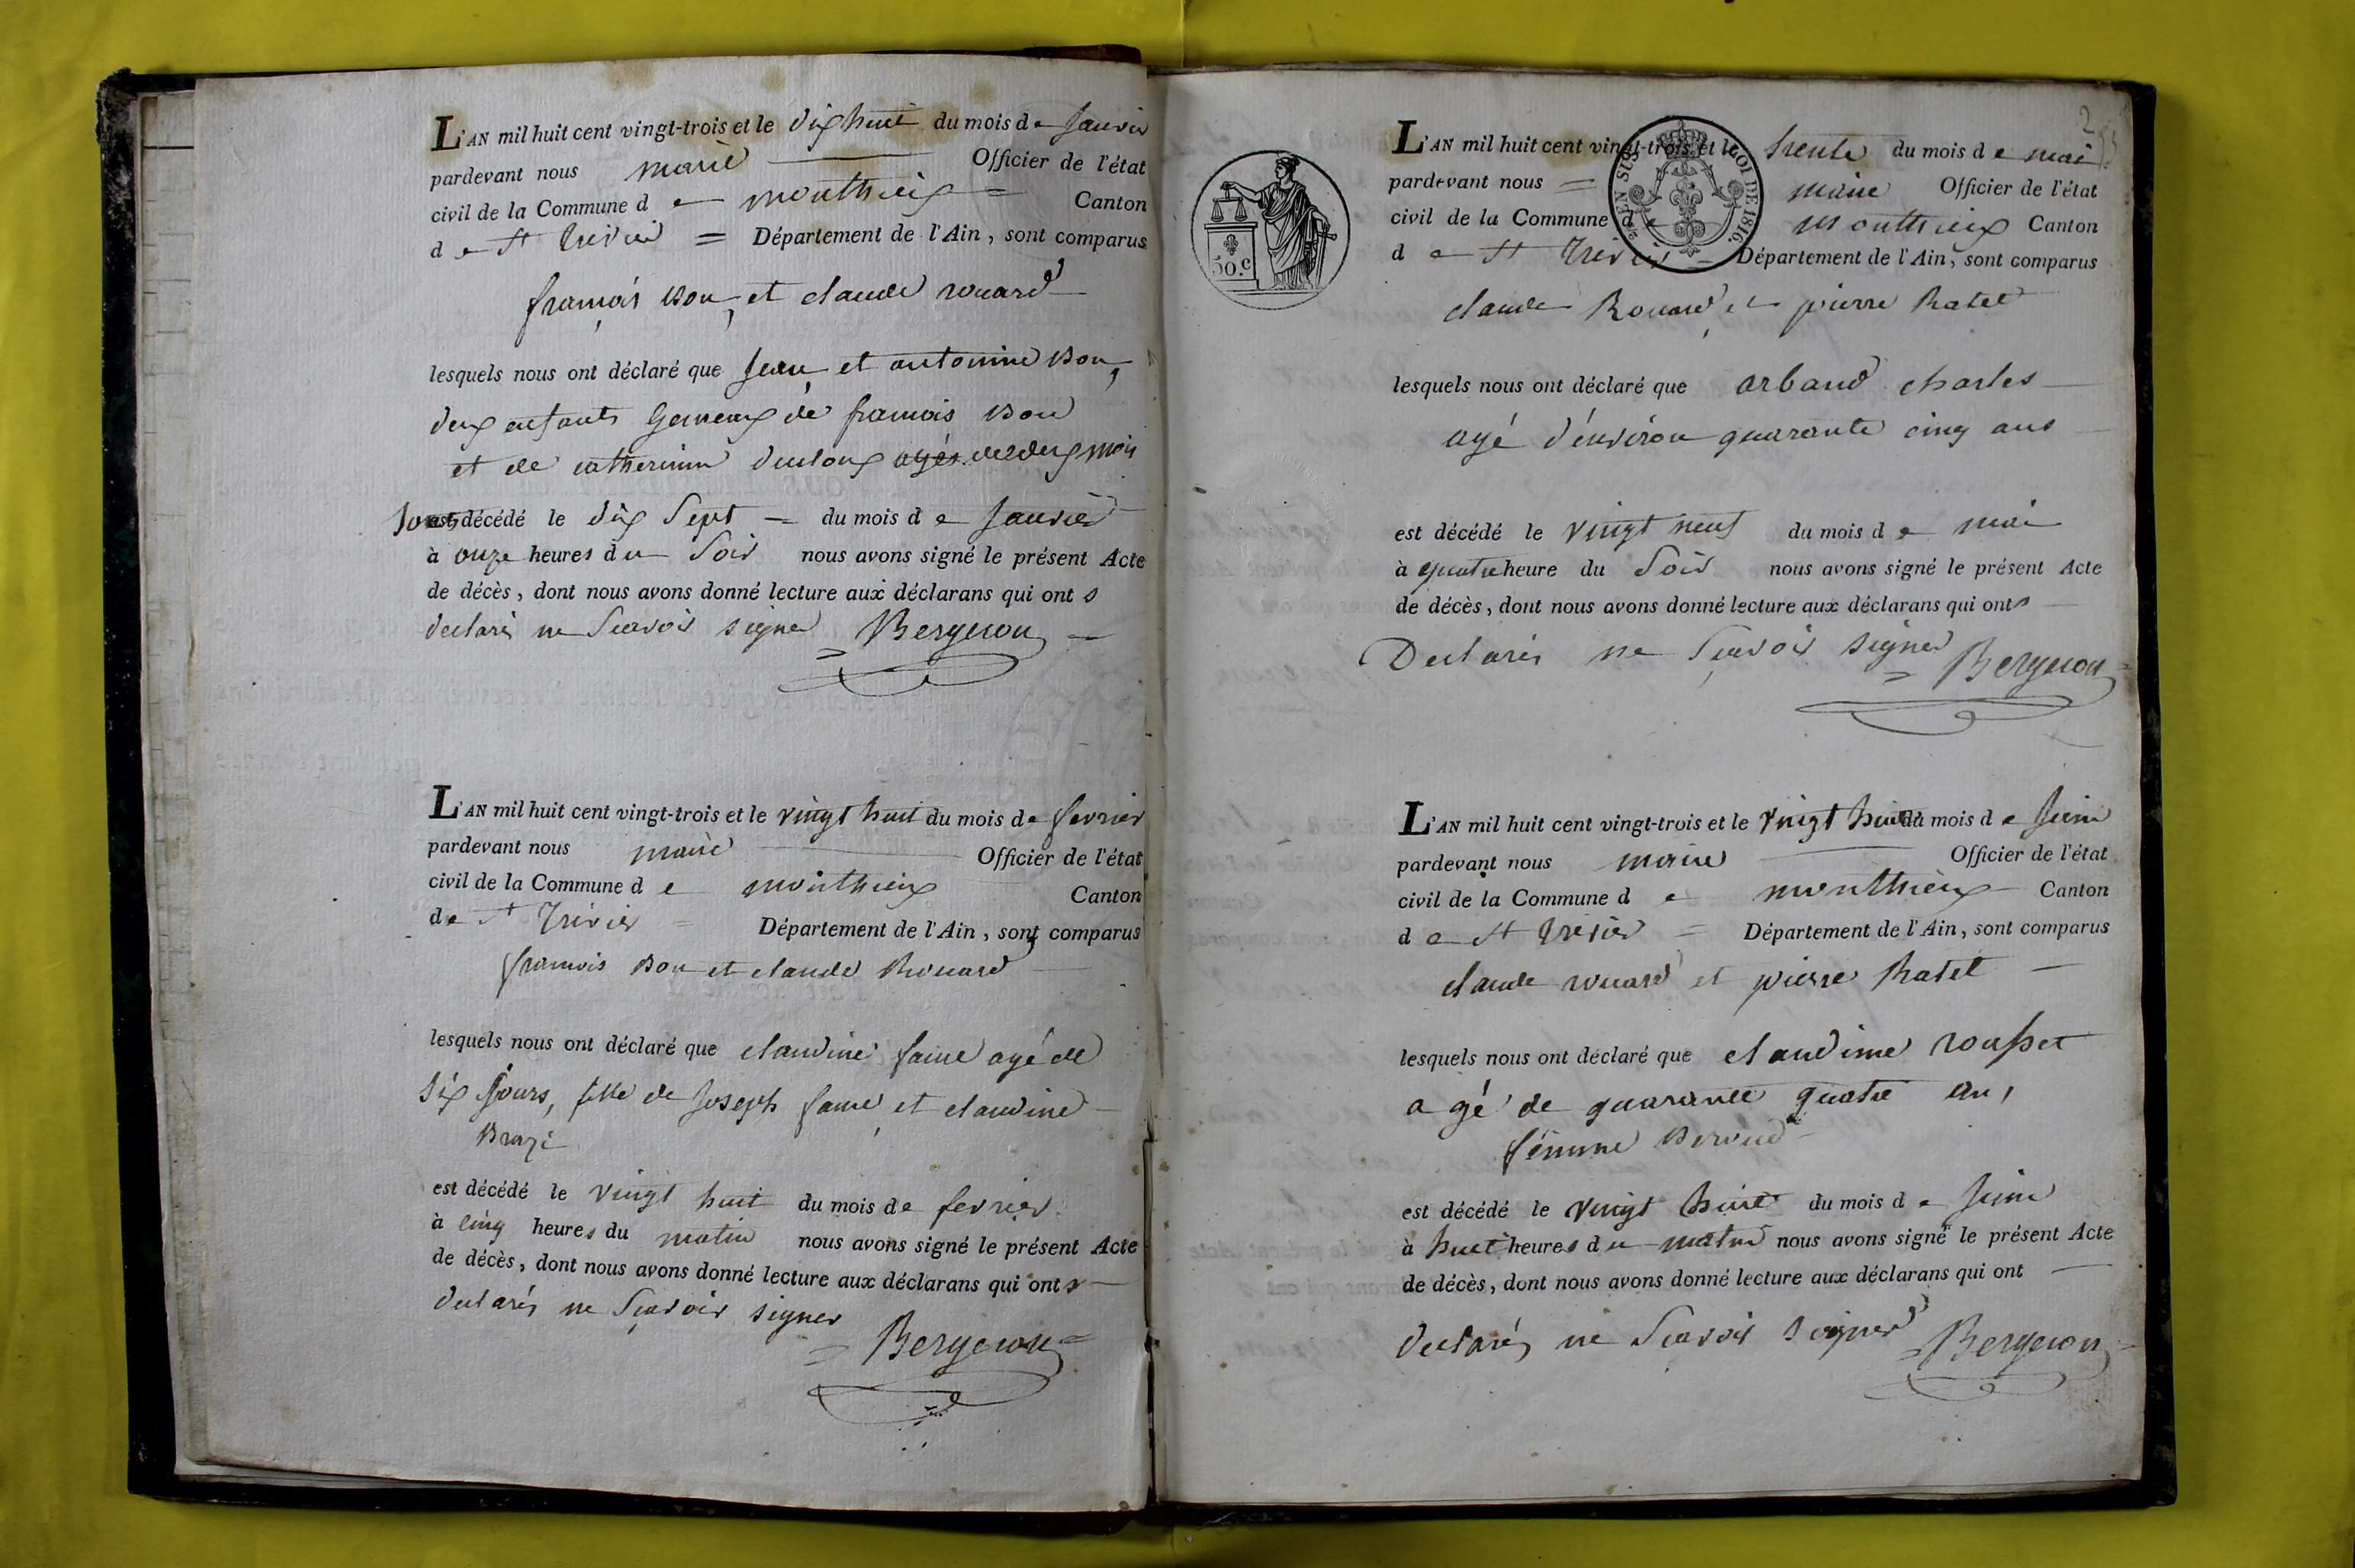 L'AN mil huit cent vingt-trois et le dix huit du mois de janvier
pardevant nous maire Officier de l'état
civil de la Commune de monthieux = Canton
de St trivier = Département de l'Ain, sont comparus
francois Bon et claude rouard
lesquels nous ont déclaré que jean et antoinine Bon
deux enfants Gemeaux de francois Bon
et de catherinne agés de deux mois
sont décédé le dix sept = du mois de janvier
à onze heures du soir nous avons signé le présent Acte
de décès, dont nous avons donné lecture aux déclarans qui ont s
declarés ne scavoir signer Bergeron
L'AN mil huit cent vingt-trois et le vingt huit du mois de fevrier
pardevant nous maire Officier de l'état
civil de la Commune de monthieux Canton
de St trivier = Département de l'Ain, sont comparus
francois Bon et claude Rouard
lesquels nous ont déclaré que claudine faure agé de
six jours, fille de joseph faure et claudine
est décédé le vingt huit du mois de fevrier
à cinq heures du matin nous avons signé le présent Acte
de décès, dont nous avons donné lecture aux déclarans qui ont s
declarés ne scavoir signer
= Bergeron =
2
L'AN mil huit cent vingt-trois et le trente du mois de mai
pardevant nous = maire Officier de l'état
civil de la Commune de monthieux Canton
de St trivier = Département de l'Ain, sont comparus
EN SUS LOI DE 1816.
50.c
claude Rouard et pierre Ratet
lesquels nous ont déclaré que arband charles
agé d'environ quarante cinq ans
est décédé le vingt neuf du mois de mai
à quatre heure du soir nous avons signé le présent Acte
de décès, dont nous avons donné lecture aux déclarans qui ont s
Declarés ne scavoir signer = Bergeron =
L'AN mil huit cent vingt-trois et le vingt huit du mois de juin
pardevant nous maire Officier de l'état
civil de la Commune de monthieux Canton
de St trivier = Département de l'Ain, sont comparus
claude rouard et pierre Ratet
lesquels nous ont déclaré que claudinne rousset
agé de quarante quatre ans
femme
est décédé le vingt huit du mois de juin
à huit heures du matin nous avons signé le présent Acte
de décès, dont nous avons donné lecture aux déclarans qui ont
declarés ne scavoir signer = Bergeron =